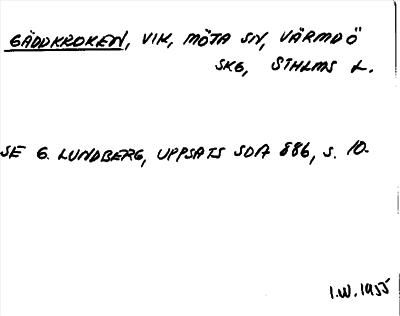 GÄDDKROKEN, VIK, MÖJA SN, VÄRMDÖ
SKG, STHLMS L.
SE G. LUNDBERG, UPPSATS SDA 886, S. 10.
I.W. 1955